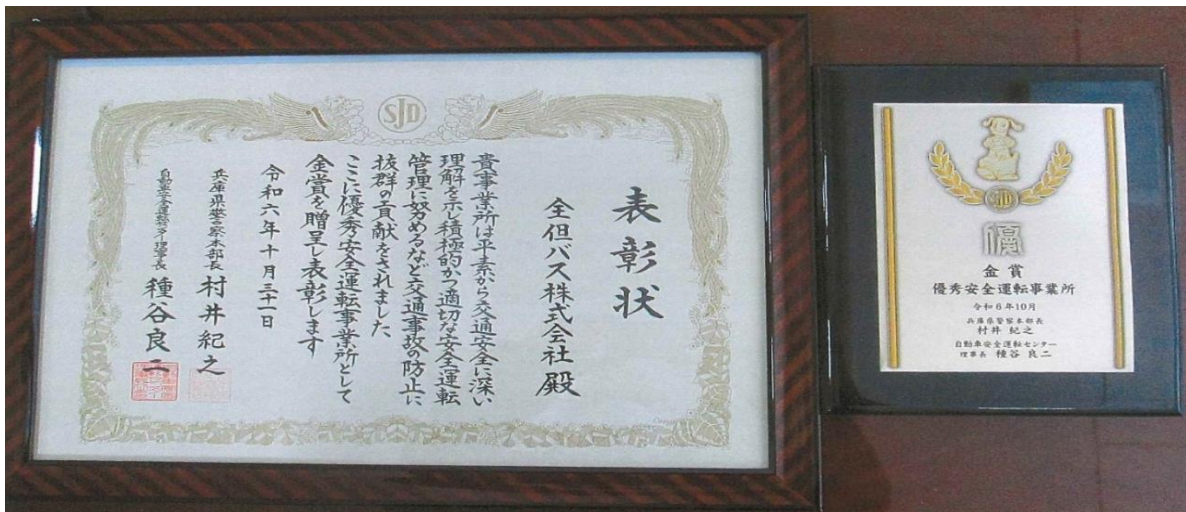 SJD
表彰状
全但バス株式会社殿
貴事業所は平素から交通安全に深い
理解を示し積極的かつ適切な安全運転
管理に努めるなど交通事故の防止に
抜群の貢献をされました
ここに優秀安全運転事業所として
金賞を贈呈し表彰します
令和六年十月三十一日
兵庫県警察本部長 村井紀之
自動車安全運転センター理事長 種谷良二
SJD
優
金賞
優秀安全運転事業所
令和6年10月
兵庫県警察本部長
村井 紀之
自動車安全運転センター
理事長 種谷 良二